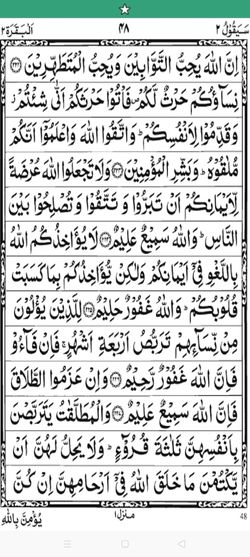 سَيَقُوْلُ ٢ ٤٨ اَلْبَقَرَة ٢
اِنَّ اللّٰهَ يُحِبُّ التَّوَّابِيْنَ وَيُحِبُّ الْمُتَطَهِّرِيْنَ ﴿٢٢٢﴾
نِسَآؤُكُمْ حَرْثٌ لَّكُمْ ۪ فَاْتُوْا حَرْثَكُمْ اَنّٰى شِئْتُمْ ؗ
وَقَدِّمُوْا لِاَنْفُسِكُمْ ؕ وَاتَّقُوا اللّٰهَ وَاعْلَمُوْۤا اَنَّكُمْ
مُّلٰقُوْهُ ؕ وَبَشِّرِ الْمُؤْمِنِيْنَ ﴿٢٢٣﴾ وَلَا تَجْعَلُوا اللّٰهَ عُرْضَةً
لِّاَيْمَانِكُمْ اَنْ تَبَرُّوْا وَتَتَّقُوْا وَتُصْلِحُوْا بَيْنَ
النَّاسِ ؕ وَاللّٰهُ سَمِيْعٌ عَلِيْمٌ ﴿٢٢٤﴾ لَا يُؤَاخِذُكُمُ اللّٰهُ
بِاللَّغْوِ فِيْۤ اَيْمَانِكُمْ وَلٰكِنْ يُّؤَاخِذُكُمْ بِمَا كَسَبَتْ
قُلُوْبُكُمْ ؕ وَاللّٰهُ غَفُوْرٌ حَلِيْمٌ ﴿٢٢٥﴾ لِلَّذِيْنَ يُؤْلُوْنَ
مِنْ نِّسَآئِهِمْ تَرَبُّصُ اَرْبَعَةِ اَشْهُرٍ ۚ فَاِنْ فَآءُوْ
فَاِنَّ اللّٰهَ غَفُوْرٌ رَّحِيْمٌ ﴿٢٢٦﴾ وَاِنْ عَزَمُوا الطَّلَاقَ
فَاِنَّ اللّٰهَ سَمِيْعٌ عَلِيْمٌ ﴿٢٢٧﴾ وَالْمُطَلَّقٰتُ يَتَرَبَّصْنَ
بِاَنْفُسِهِنَّ ثَلٰثَةَ قُرُوْٓءٍ ؕ وَلَا يَحِلُّ لَهُنَّ اَنْ
يَّكْتُمْنَ مَا خَلَقَ اللّٰهُ فِيْۤ اَرْحَامِهِنَّ اِنْ كُنَّ
يُؤْمِنَّ بِاللّٰهِ منزل ١ 48